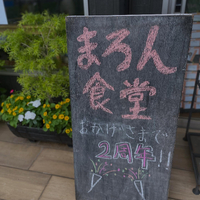 まろん
食堂
おかげさまで
2周年!!